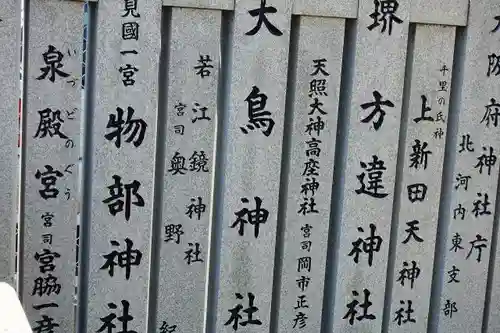 大阪府神社庁
北河内東支部
千里の氏神
上新田天神社
堺
方違神社
天照大神高座神社
宮司 岡市正彦
大鳥神社
若江鏡神社
宮司 奥野
見国一宮
物部神社
泉殿宮
いづどのぐう
宮司 宮脇一彦